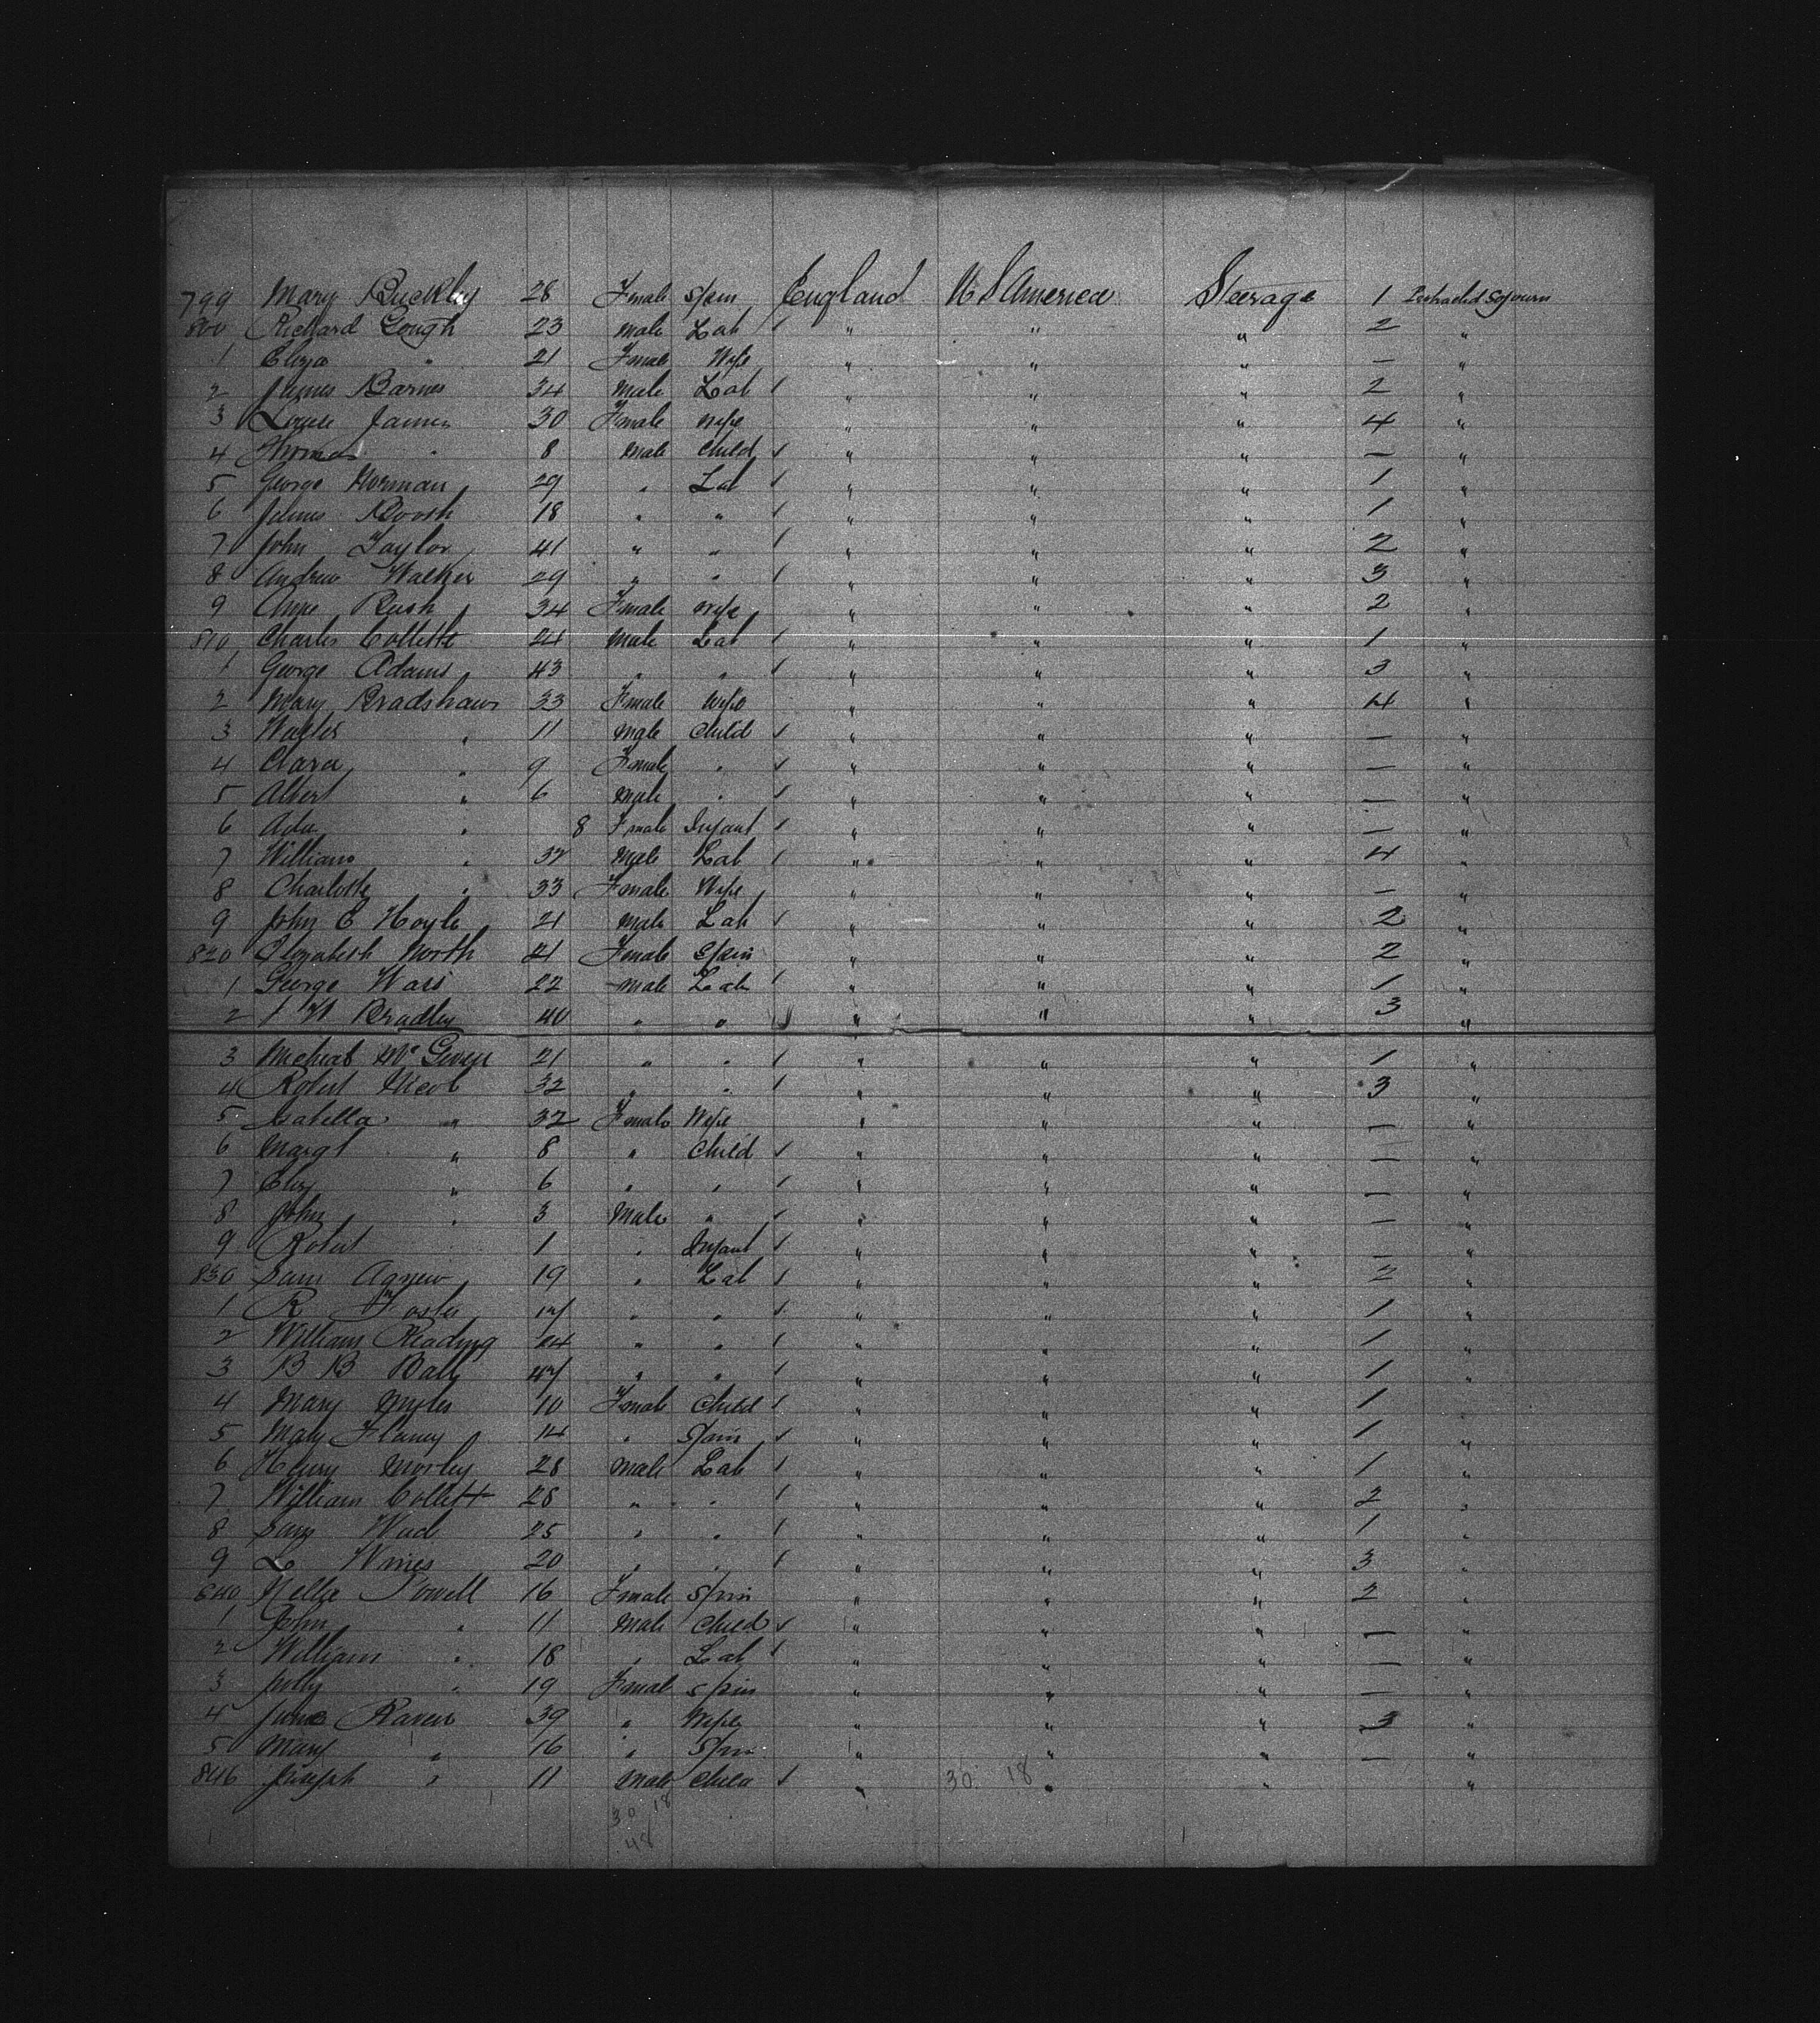 799 Mary Buckley 28 Female Spin England U S America Steerage 1 Protracted Sojourn
800 Richard Gough 23 Male Lab / " " " 2 "
1 Eliza " 21 Female Wife " " " — "
2 James Barnes 34 Male Lab / " " " 2 "
3 James 30 Female Wife " " " 4 "
4 Thomas " 8 Male Child / " " " — "
5 George Norman 29 " Lab / " " " 1 "
6 Booth 18 " " / " " " 1 "
7 John Taylor 41 " " / " " " 2 "
8 Andrew Walker 29 " " / " " " 3 "
9 Anne Rush 34 Female Wife " " " 2 "
810 Charles Collette 21 Male Lab / " " " 1 "
1 George Adams 43 " " / " " " 3 "
2 Mary Bradshaw 33 Female Wife " " " 4 "
3 Walter " 11 Male Child / " " " — "
4 Clara " 9 Female " / " " " — "
5 Albert " 6 Male " / " " " — "
6 Ada " 8 Female Infant / " " " — "
7 William " 37 Male Lab / " " " 4 "
8 Charlotte " 33 Female Wife " " " — "
9 John E Hoyle 21 Male Lab / " " " 2 "
820 Elizabeth North 21 Female Spin " " " 2 "
1 George 22 Male Lab / " " " 1 "
2 Bradley 40 " " " " " 3 "
3 Micheal 21 " " / " " " 1 "
4 Robert Nicol 32 " " / " " " 3 "
5 Isabella " 32 Female Wife " " " — "
6 Margt " 8 " Child / " " " — "
7 Eliz " 6 " " / " " " — "
8 John " 3 Male " / " " " — "
9 Robert 1 " Infant / " " " — "
830 Sam Agnew 19 " Lab / " " " 2 "
1 R Foster 17 " " / " " " 1 "
2 William Reading 24 " " / " " " 1 "
3 B B Ball 47 " " / " " " 1 "
4 Mary Myles 10 Female Child / " " " 1 "
5 Mary 14 " Spin / " " " 1 "
6 Henry Morley 28 Male Lab / " " " 1 "
7 William Collett 28 " " / " " " 2 "
8 Sam 25 " " / " " " 1 "
9 L 20 " " / " " " 3 "
840 Nellie Powell 16 Female Spin " " " 2 "
1 John " 11 Male Child / " " " — "
2 William " 18 " Lab / " " " — "
3 Polly " 19 Female Spin " " " — "
4 Raven 39 " Wife " " " 3 "
5 Mary " 16 " Spin " " " — "
846 Joseph " 11 Male Child / " 30 18 " " "
30 18
48